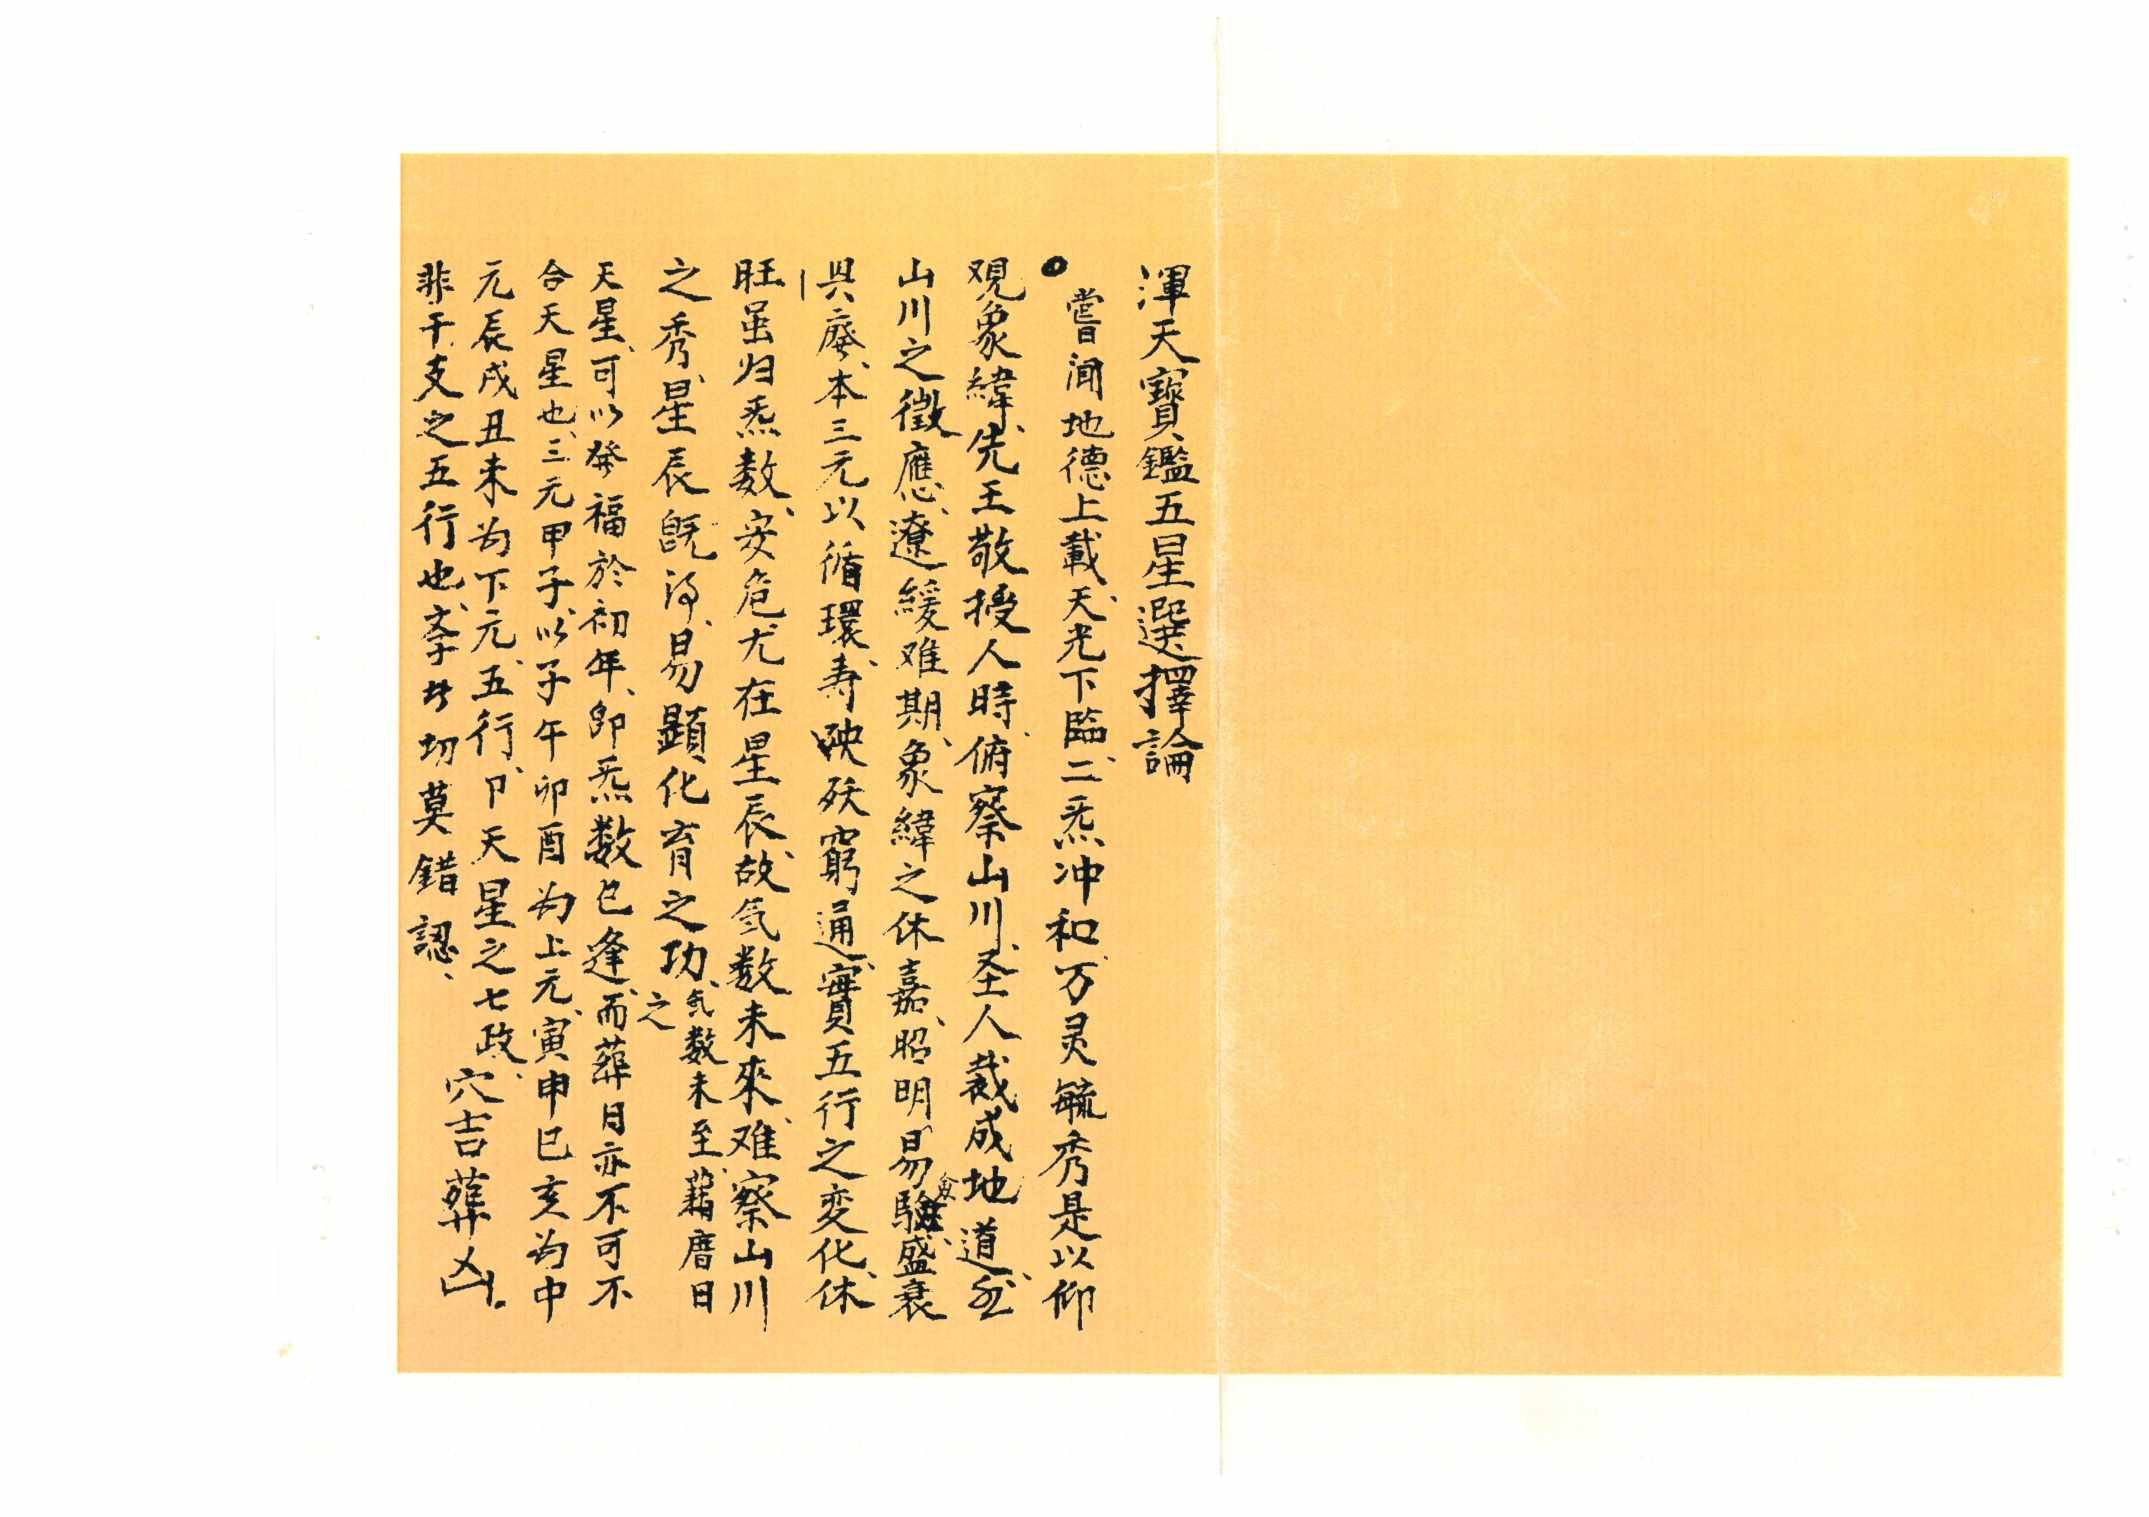 渾天寶鑑五星選擇論
嘗闻地德上載、天光下臨、二炁冲和、万灵毓秀是以仰
观象緯、先王敬授人時、俯察山川、圣人裁成地道、
山川之徵應、遼緩难期、象緯之休嘉、昭明易驗、盛衰
兴廢、本三元以循環、寿殀窮通、實五行之変化、休
旺虽归炁数、安危尤在星辰、故気数未來、难察山川
之秀、星辰既得、易顯化育之功、気数未至、藉曆日之
天星、可以發福於初年、即炁数已逢、而葬日亦不可不
合天星也、三元甲子、以子午卯酉为上元、寅申巳亥为中
元辰戌丑未为下元、五行、卩天星之七政、穴吉葬凶。
非干支之五行也、学者切莫錯認、